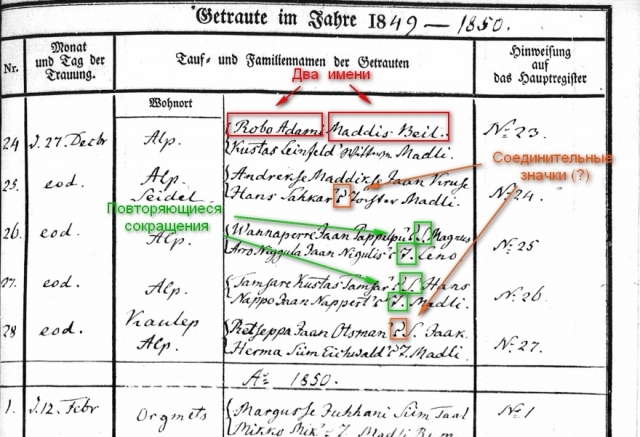 Getraute im Jahre 1849 – 1850.
Nr.
Monat und Tag der Trauung.
Tauf- und Familiennamen der Getrauten
Hinweisung auf das Hauptregister
Wohnort
Два имени
24 d. 27. Decbr Alp. Robo Adami Maddis Beil. No 23.
Kustas Leinfeld Madli.
Соединительные значки (?)
25. eod. Alp. Andrekse Maddikse Jaan Kiruse
Seidel Hans Sakkar's Tochter Madli. No 24.
Повторяющиеся сокращения
26. eod. Alp. Wannaperri Jaan Pappilpu's S. Magnus No 25
Arro Niggula Jaan Nigulis's T. Leno
27. eod. Alp. Tamsare Kustas Tamsar's S. Hans No. 26
Nappo Jaan Nappert's T. Madli.
28 eod. Kaulep Retseppa Jaan Otsman's S. Jaak. No. 27.
Alp. Herma Siim Eichwald's T. Madli.
Ao 1850.
1. d. 12. Febr Orgmets Margusse Juhhani Siim Saal No 1
Mikko Mik's T. Madli